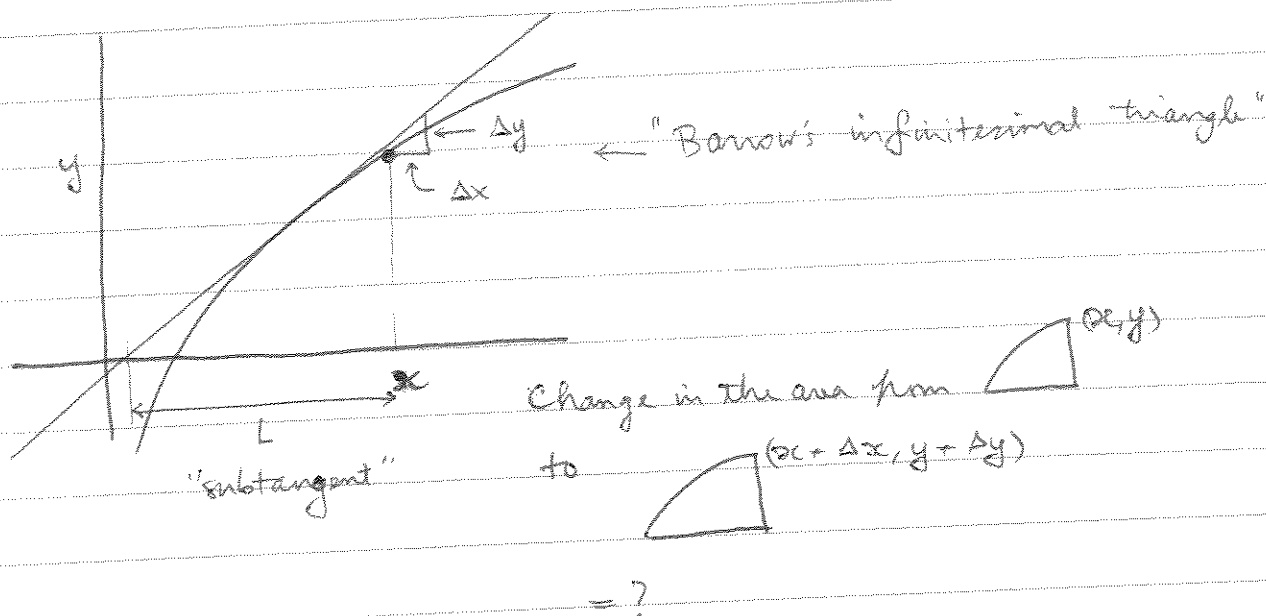 y
Δy
← "Barrow's infinitesimal triangle"
Δx
x
L
"subtangent"
Change in the area from
(x, y)
to
(x + Δx, y + Δy)
= ?